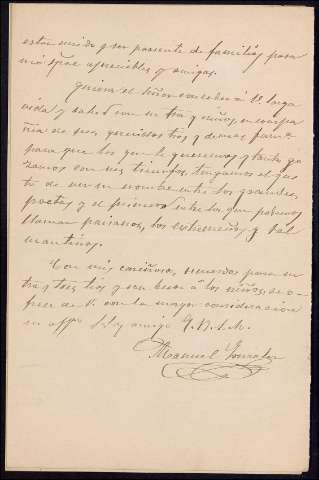 estar unido y ser pariente de familias para
mi apreciables y amigas.
Quiera el Señor conceder á V. larga
vida y salud con su tia y niños, en compa
ñia de sus queridos tios y demas fam.ª
para que los que le queremos y tanto go
zamos con sus triunfos, tengamos el gus
to de ver su nombre entre los grandes
poetas y el primero entre los que podemos
llamar paisanos, los extremeños y sal
mantinos.
Con mis cariñosos recuerdos para su
tia y tios y un beso á los niños, se o
frece de V. con la mayor consideracion
su aff.mo y amigo Q. B. S. M.
Manuel Gonzalez